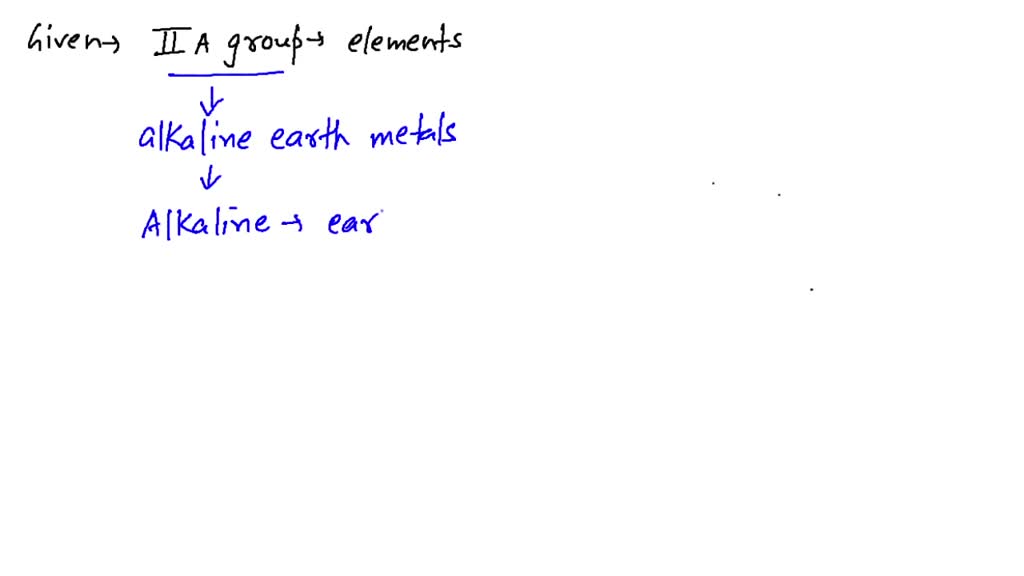 Given→ II A group→ elements
↓
alkaline earth metals
↓
Alkaline → ear